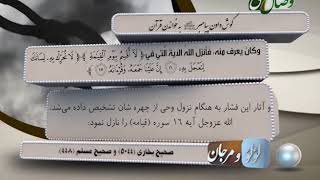 وصال حق
گوش دادن پیامبر ﷺ به خواندن قرآن
وكان يعرف منه، فأنزل الله الآية التي في ﴿ لَا أُقْسِمُ بِيَوْمِ الْقِيَامَةِ ﴾ ﴿ لَا تُحَرِّكْ بِهِ لِسَانَكَ
لِتَعْجَلَ بِهِ ﴾ ﴿ إِنَّ عَلَيْنَا جَمْعَهُ وَقُرْآنَهُ ﴾
و آثار این فشار به هنگام نزول وحی از چهره شان تشخیص داده می‌شد.
الله عزوجل آیه ۱۶ سوره (قیامه) را نازل نمود:
صحیح بخاری (۵۰۴۴) و صحیح مسلم (۴۴۸)
لؤلؤ و مرجان